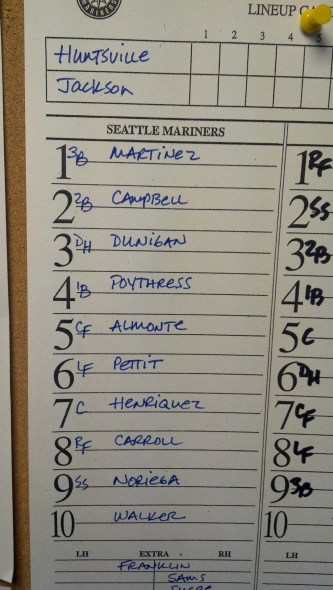 LINEUP CA
1 2 3 4 5
Huntsville
Jackson
SEATTLE MARINERS
1 3B MARTINEZ 1 RF
2 2B CAMPBELL 2 SS
3 DH DUNIGAN 3 2B
4 1B POYTHRESS 4 1B
5 CF ALMONTE 5 C
6 LF PETTIT 6 DH
7 C HENRIQUEZ 7 CF
8 RF CARROLL 8 LF
9 SS NORIEGA 9 3B
10 WALKER 10
LH EXTRA RH LH
FRANKLIN
SAMS